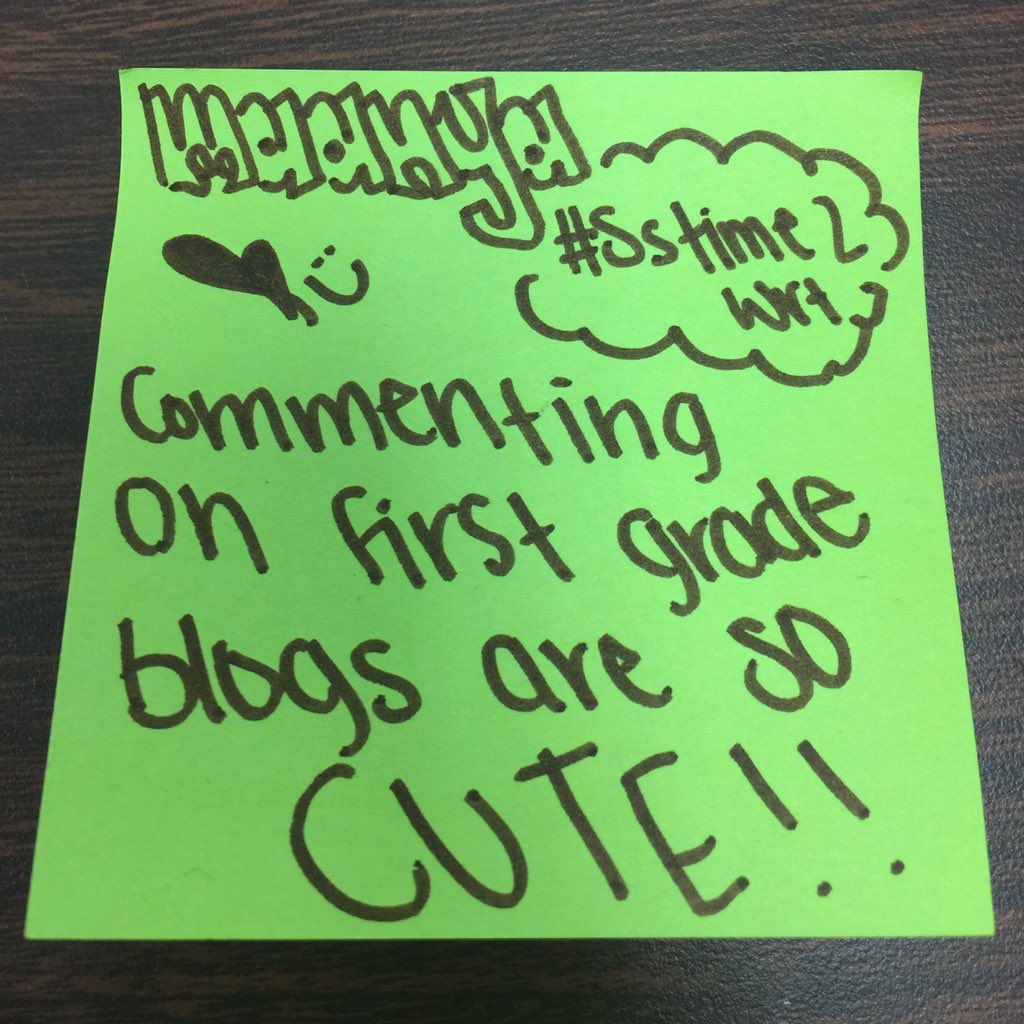 #Sstime2
wrt
Commenting
on first grade
blogs are so
CUTE!!